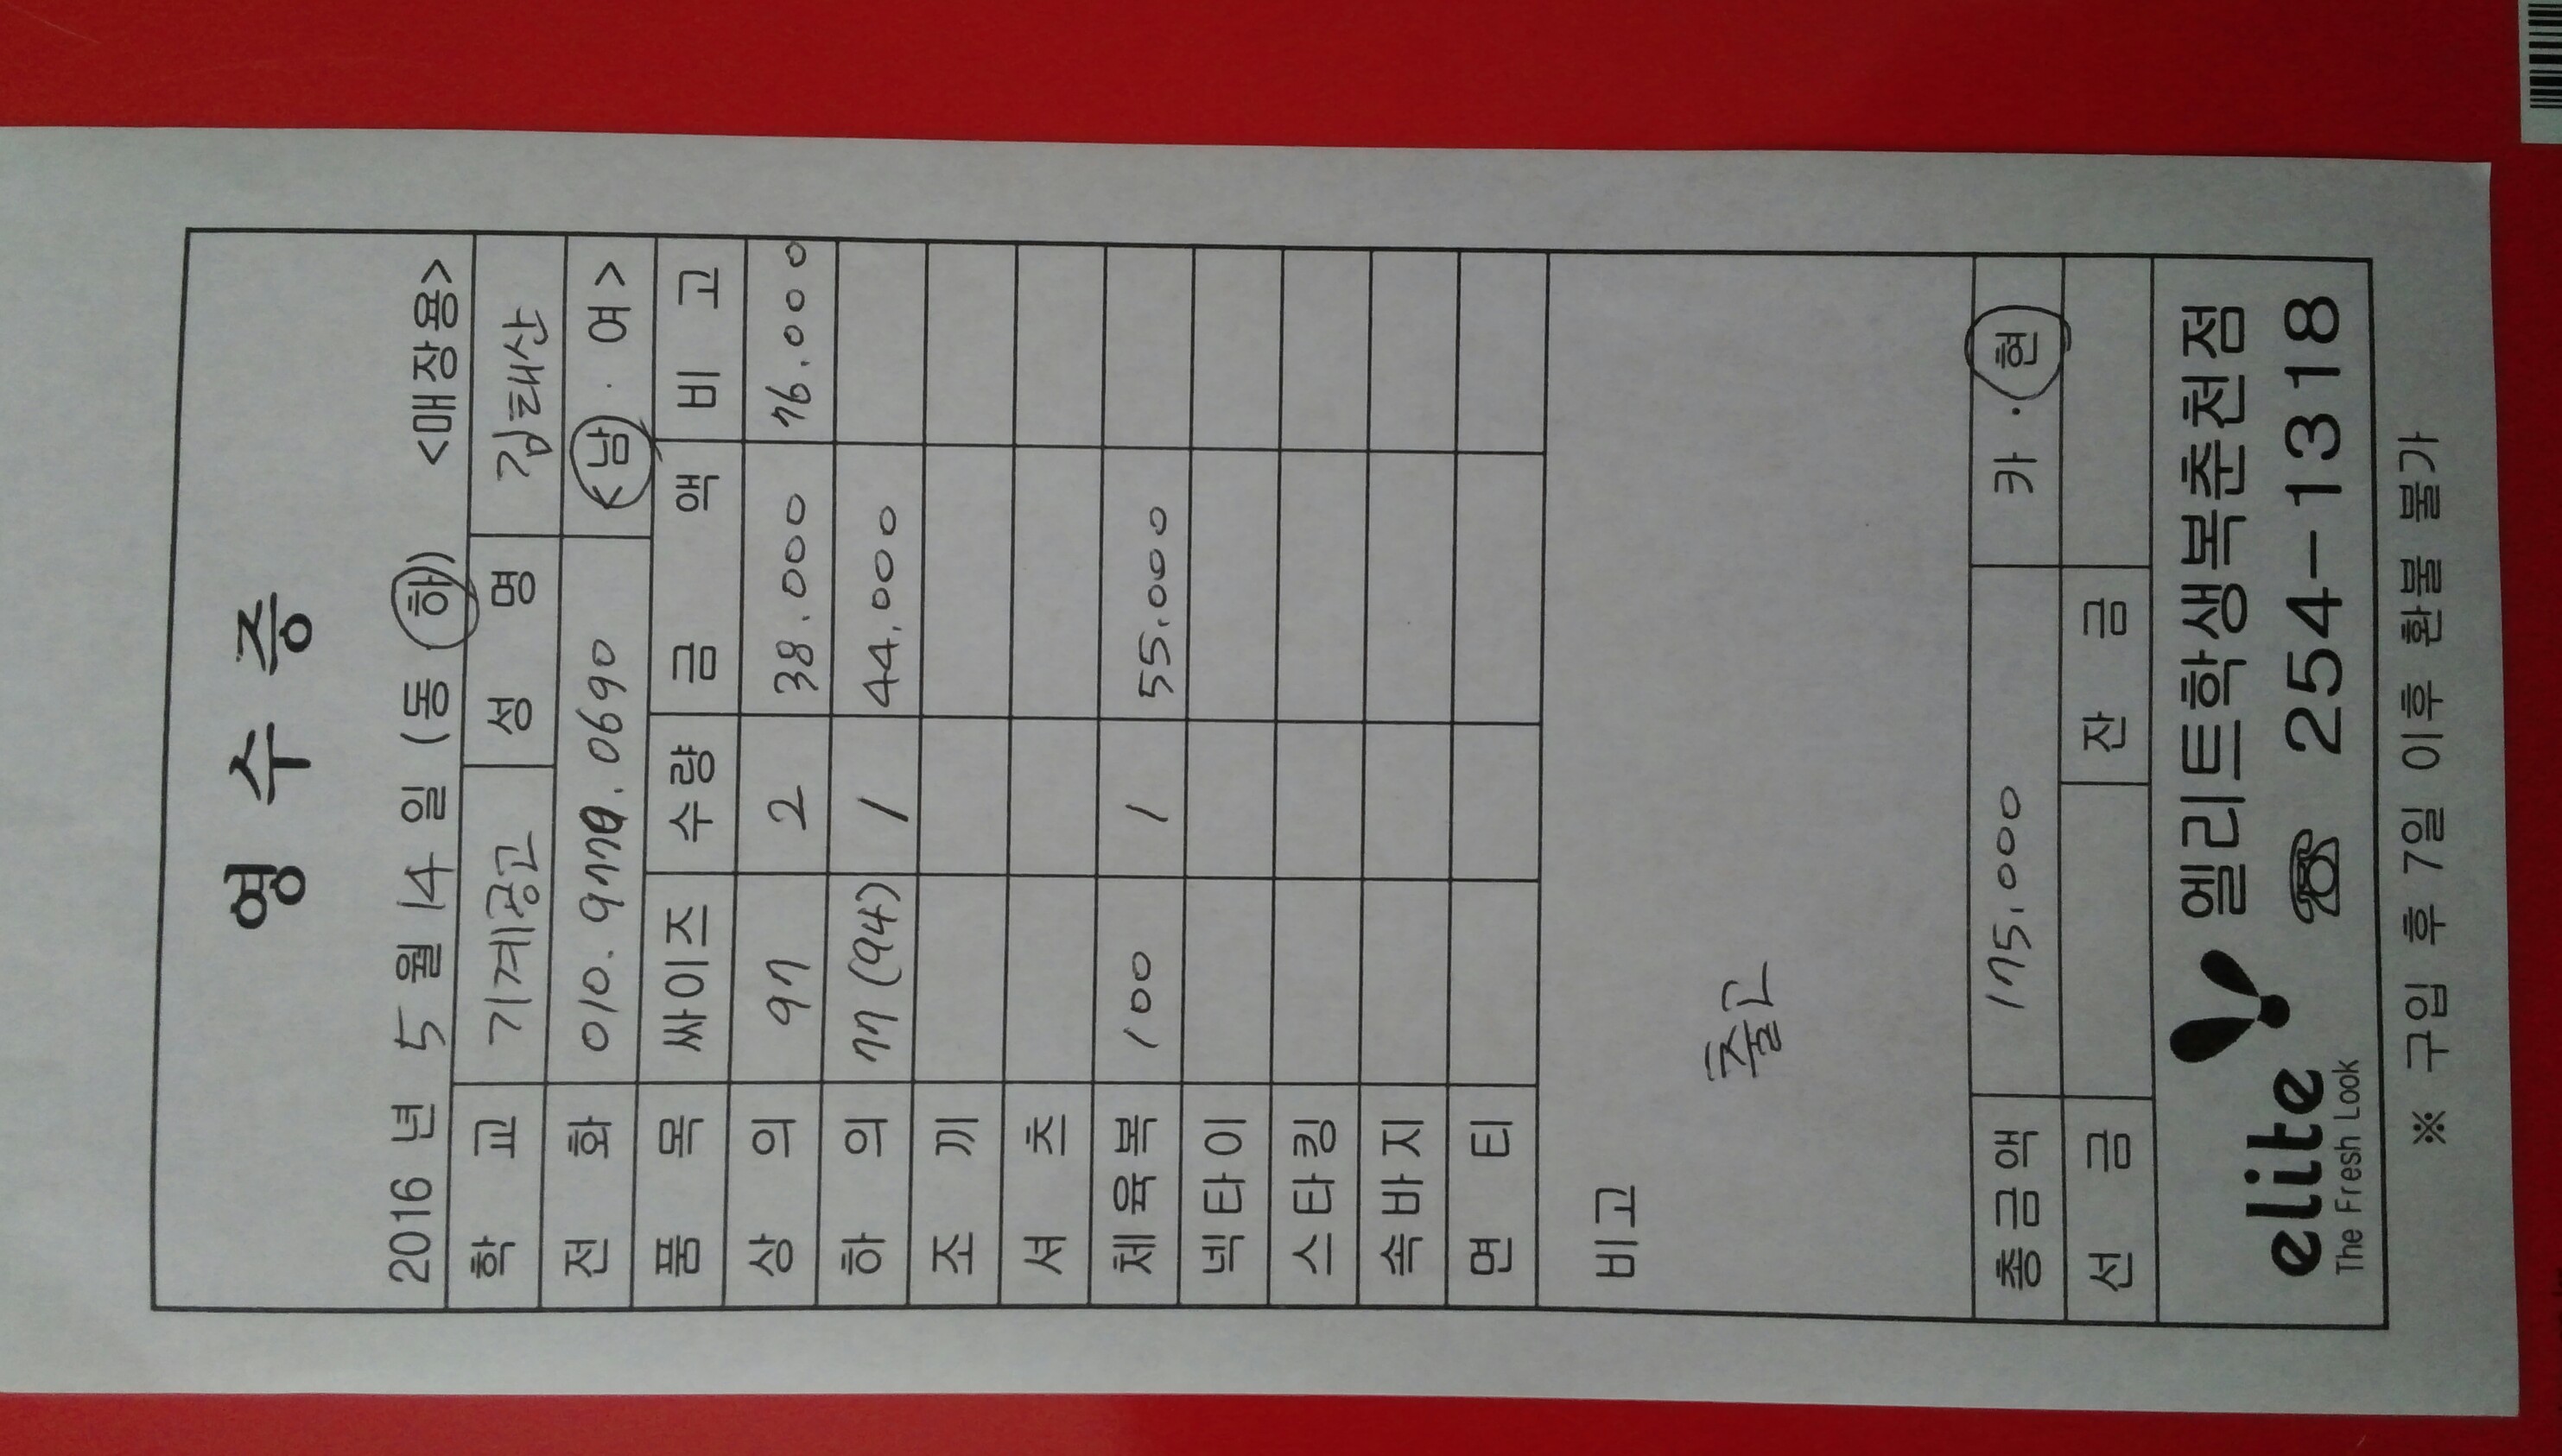 영 수 증
2016 년 5 월 14 일 (동 하) <매장용>
학 교 기계공고 성 명 김태산
전 화 <남 · 여>
품 목 싸이즈 수량 금 액 비 고
상 의 97 2 38.000 76.000
하 의 77 (94) 1 44.000
조 끼
셔 츠
체육복 100 1 55.000
넥타이
스타킹
속바지
면 티
비고
출고
총금액 175.000 카 · 현
선 금 잔 금
elite 엘리트학생복춘천점
The Fresh Look ☎ 254-1318
※ 구입 후 7일 이후 환불 불가